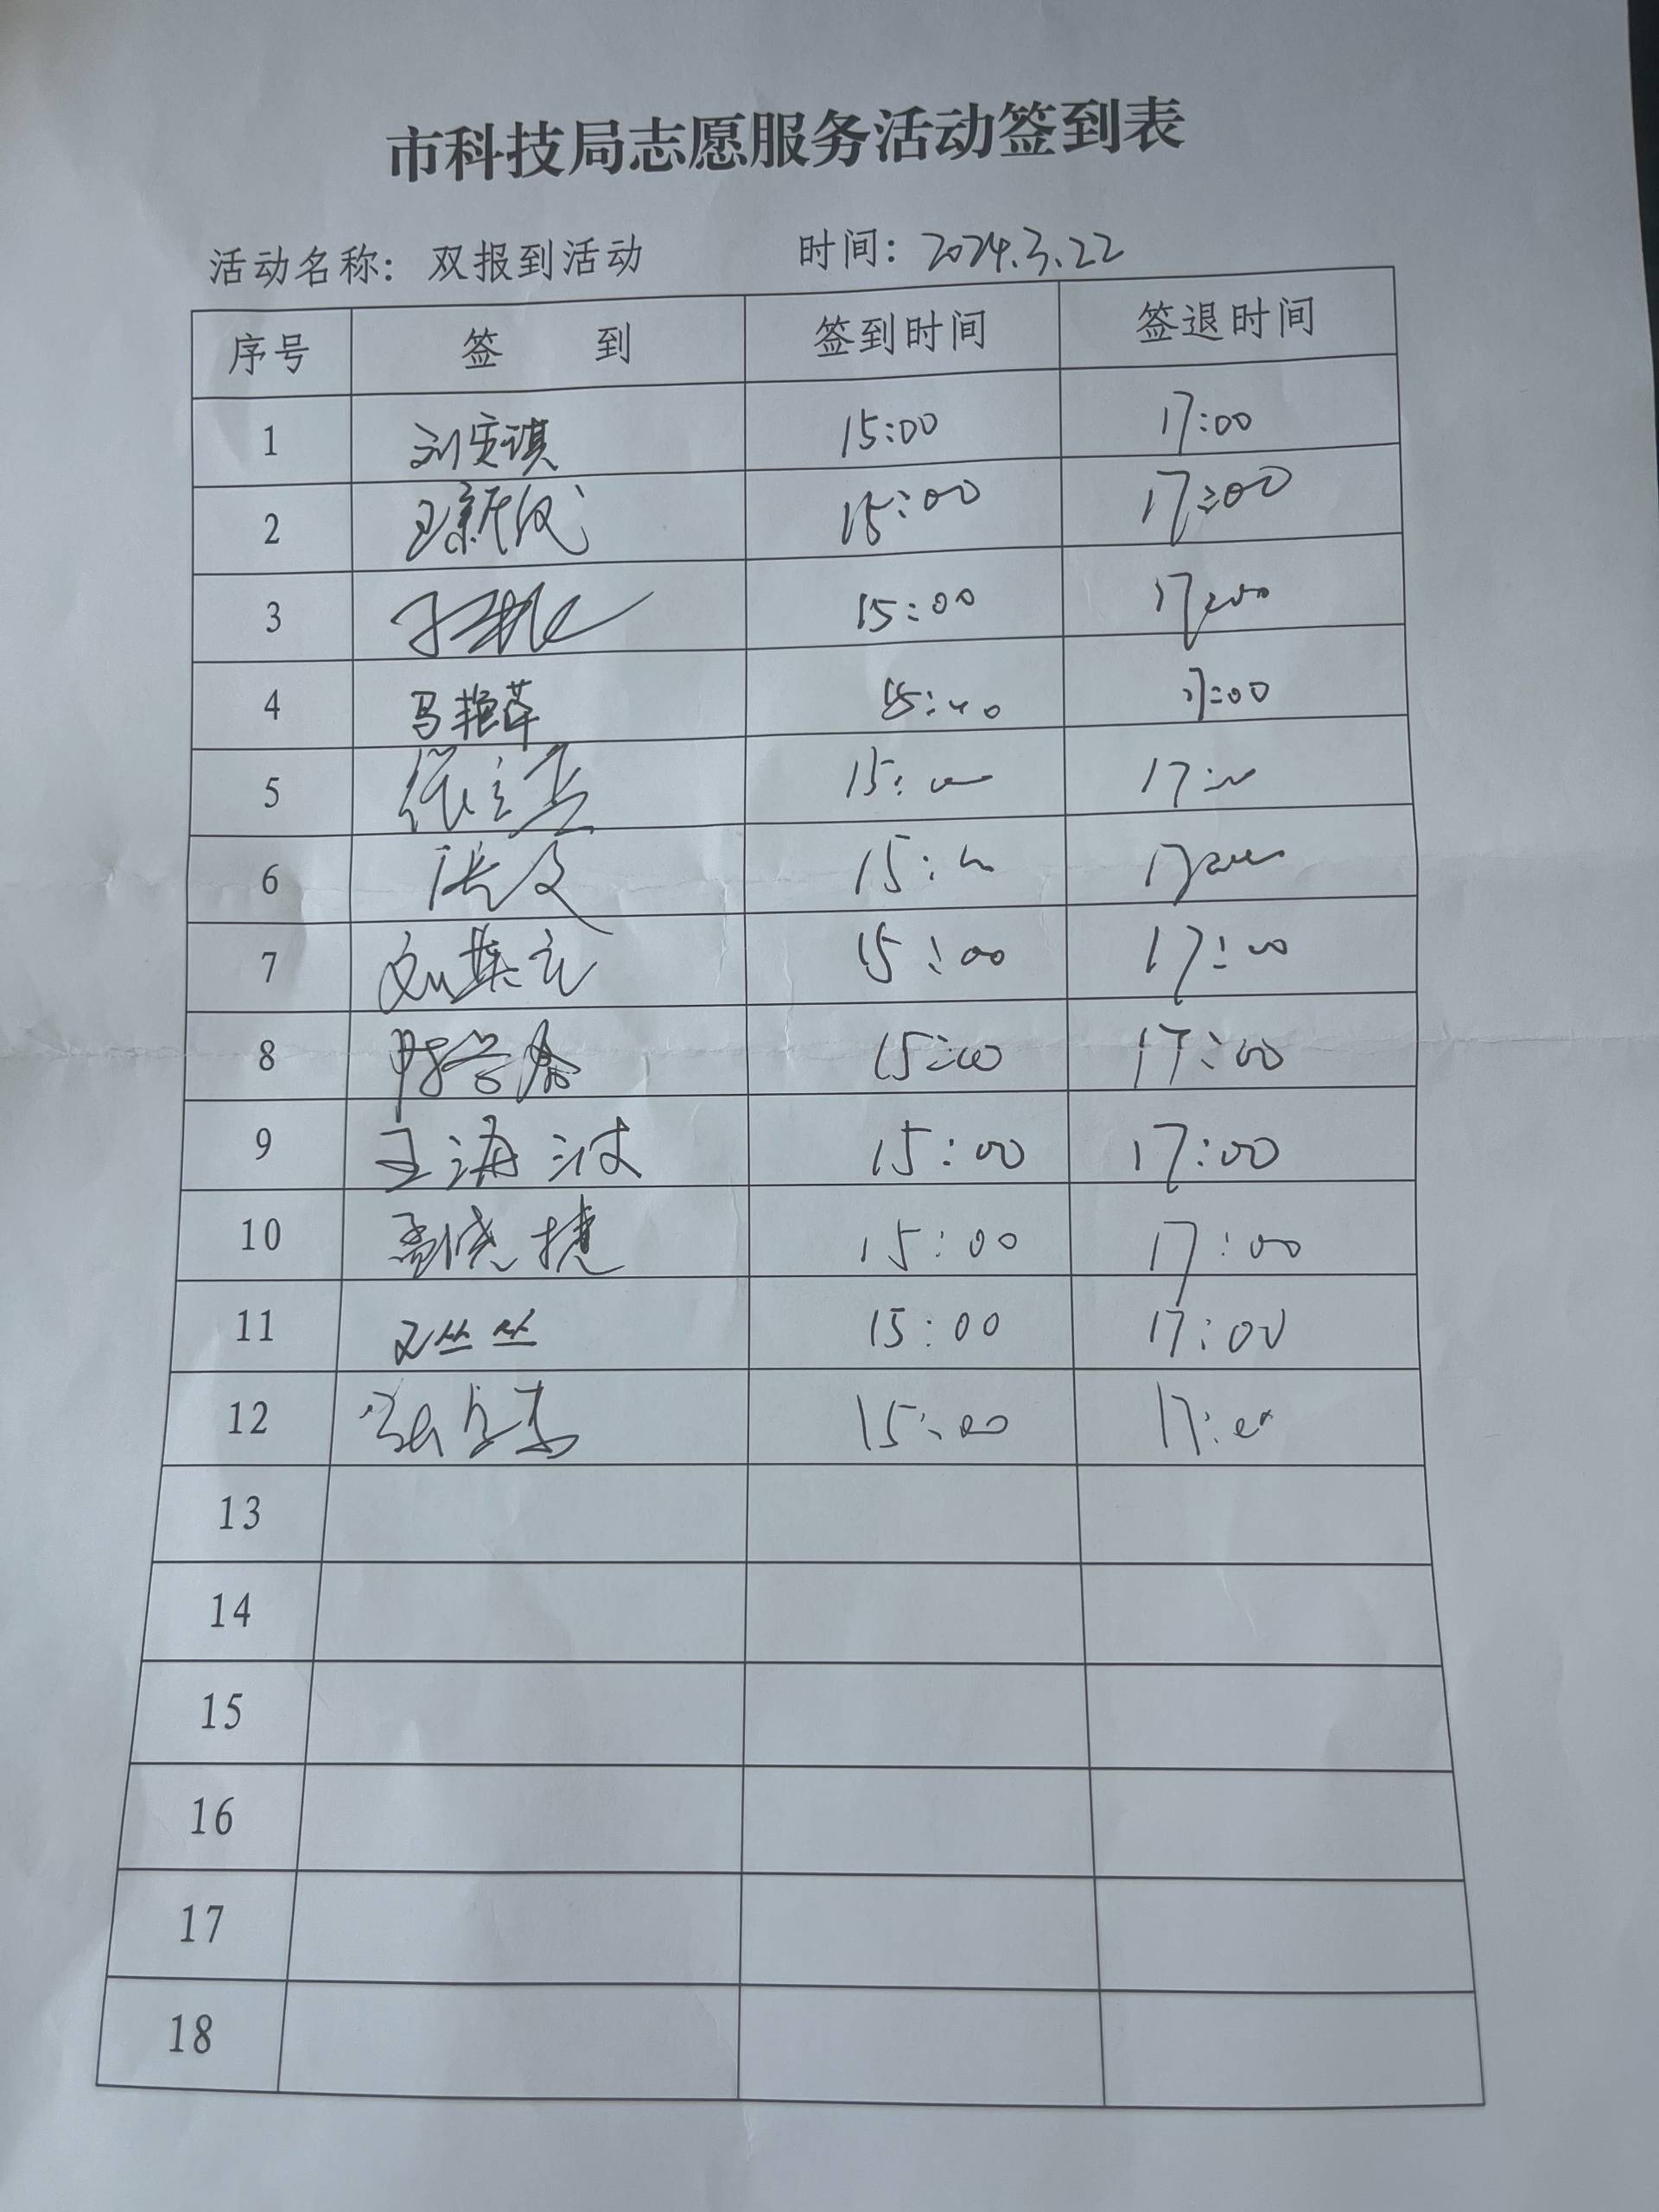 市科技局志愿服务活动签到表
活动名称: 双报到活动 时间: 2024.3.22
序号 签 到 签到时间 签退时间
1 刘安琪 15:00 17:00
2 15:00 17:00
3 15:00 17:00
4 马艳萍 17:00
5 15:00 17:00
6 张文 15:00 17:00
7 15:00 17:00
8 15:00 17:00
9 王海波 15:00 17:00
10 孟晓捷 15:00 17:00
11 王丛丛 15:00 17:00
12 15:00 17:00
13
14
15
16
17
18